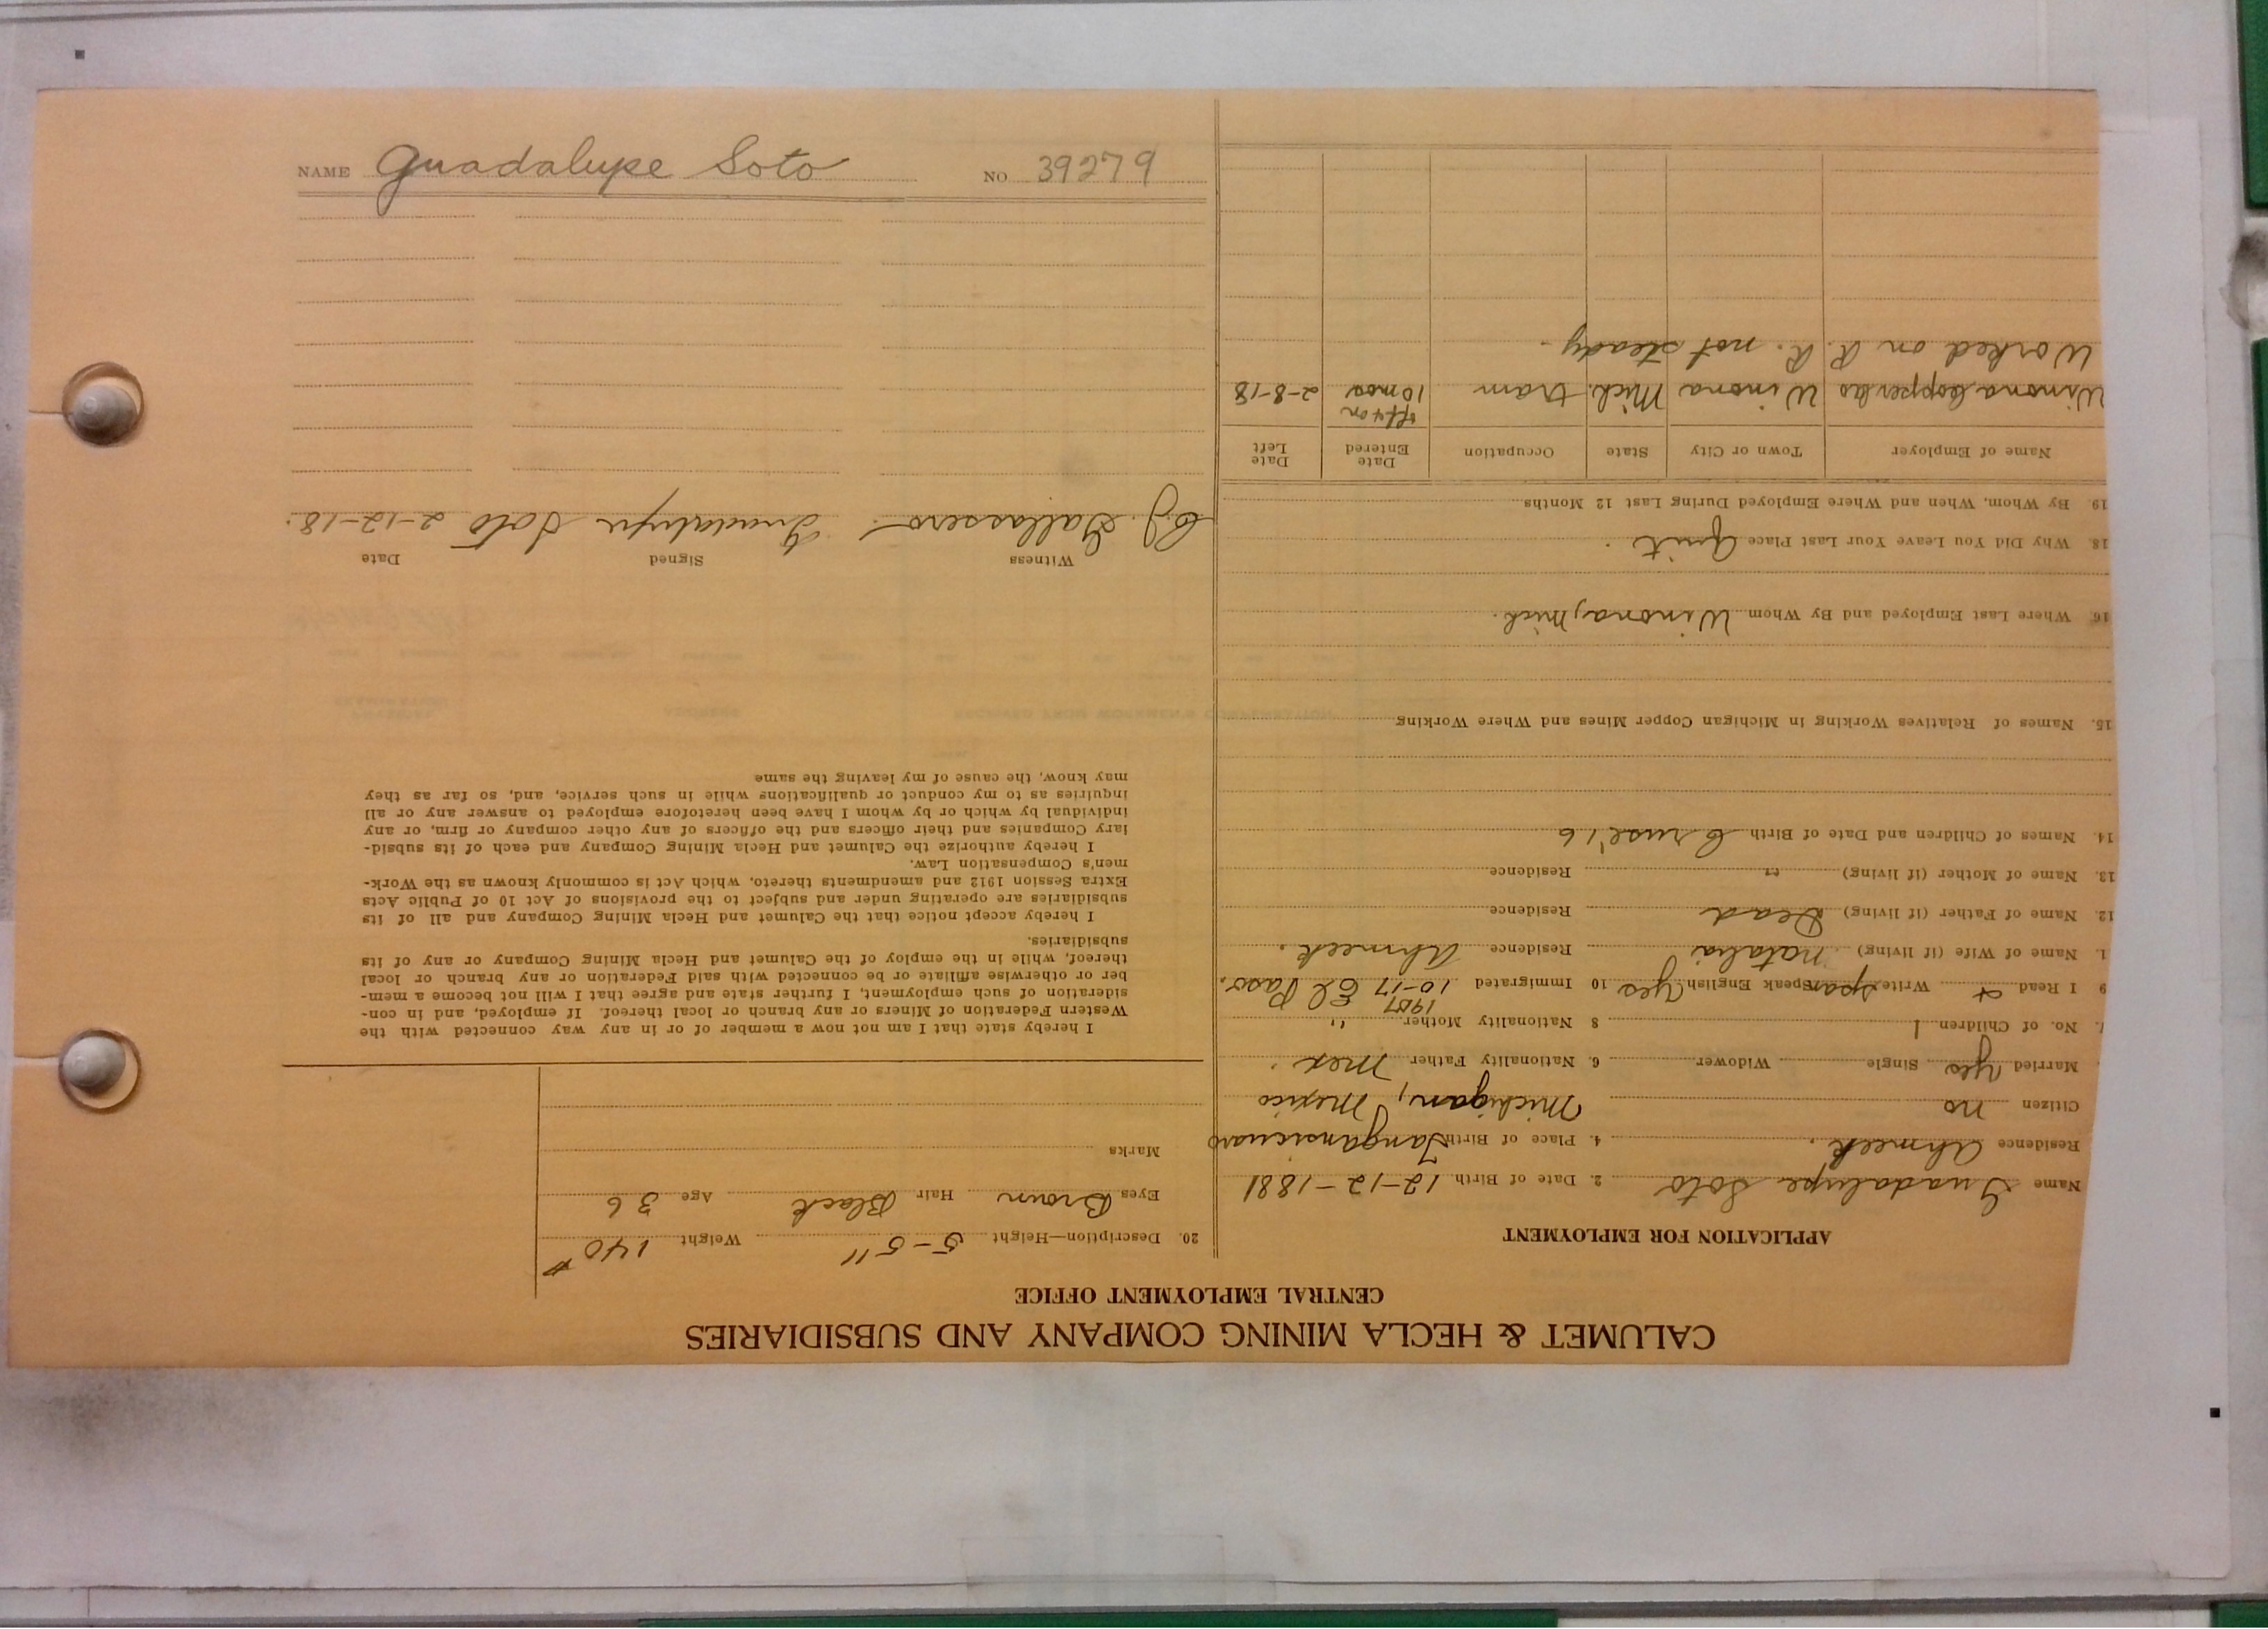 CALUMET & HECLA MINING COMPANY AND SUBSIDIARIES
CENTRAL EMPLOYMENT OFFICE
APPLICATION FOR EMPLOYMENT
Name Guadalupe Soto 2. Date of Birth 12-12-1881
Residence Ahmeek. 4. Place of Birth Tangansicuaro
Citizen no Michigan, Mexico
Married yes Single Widower 6. Nationality Father Mex.
7. No. of Children 1 8 Nationality Mother "
9 I Read + Write Span Speak English yes 10 Immigrated 1907 10-17 El Paso.
1. Name of Wife (if living) Natalia Residence Ahmeek.
12. Name of Father (if living) Dead Residence
13. Name of Mother (if living) " Residence
14. Names of Children and Date of Birth Cruse 16
15. Names of Relatives Working in Michigan Copper Mines and Where Working
16. Where Last Employed and By Whom Winona, Mich.
18. Why Did You Leave Your Last Place Quit.
19. By Whom, When and Where Employed During Last 12 Months
Name of Employer Town or City State Occupation Date Entered Date Left
Winona Copper Co Winona Mich. tram off + on 10 mos 2-8-18
Worked on R. R. not steady.
20. Description—Height 5-5" Weight 140#
Eyes Brown Hair Black Age 36
Marks
I hereby state that I am not now a member of or in any way connected with the
Western Federation of Miners or any branch or local thereof. If employed, and in con-
sideration of such employment, I further state and agree that I will not become a mem-
ber or otherwise affiliate or be connected with said Federation or any branch or local
thereof, while in the employ of the Calumet and Hecla Mining Company or any of its
subsidiaries.
I hereby accept notice that the Calumet and Hecla Mining Company and all of its
subsidiaries are operating under and subject to the provisions of Act 10 of Public Acts
Extra Session 1912 and amendments thereto, which Act is commonly known as the Work-
men's Compensation Law.
I hereby authorize the Calumet and Hecla Mining Company and each of its subsid-
iary Companies and their officers and the officers of any other company or firm, or any
individual by which or by whom I have been heretofore employed to answer any or all
inquiries as to my conduct or qualifications while in such service, and, so far as they
may know, the cause of my leaving the same
Witness Signed Date
C. J. Gallassero Guadalupe Soto 2-12-18.
NAME Guadalupe Soto NO 39279